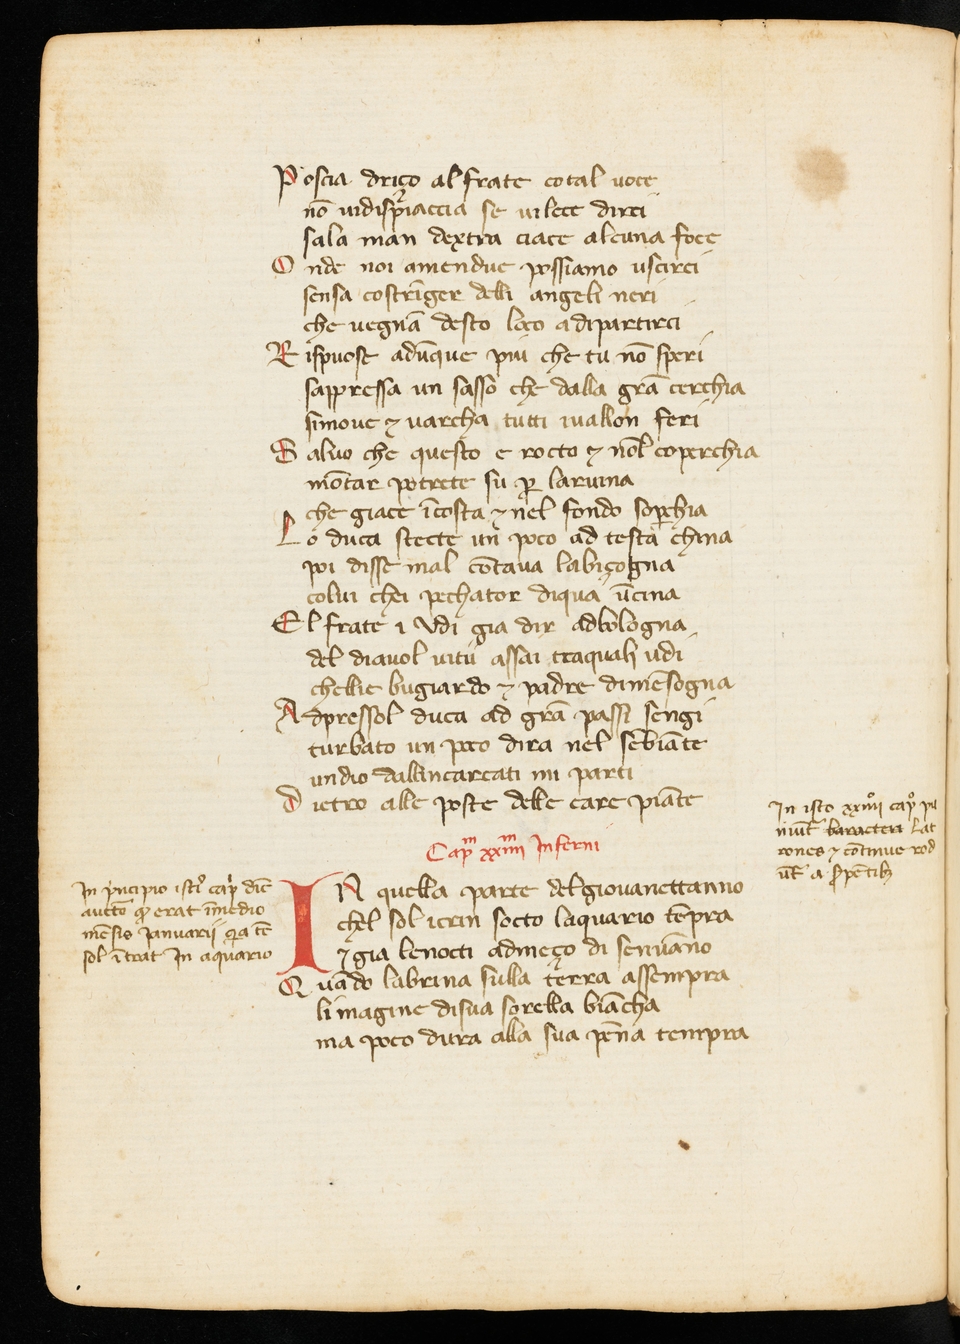 Poscia driço al frate cotal uoce
nō uidisp̄iaccia se uilece dirci
sala man dextra ciace alcuna foce
Onde noi amendue possiamo uscirci
sensa costrīger delli angeli neri
che uegnā desto loco adipartirci
Rispuose adūque piu che tu nō speri
sappressa un sasso che dalla grā cerchia
simoue ⁊ uarcha tutti iuallon feri
Saluo che questo e rocto ⁊ nōl coperchia
mōtar potrete su ꝑ laruina
che giace īcosta ⁊ nel fondo soꝑchia
Lo duca stecte un poco ad testa china
poi disse mal cōtaua labiçogna
colui chei pechator diqua ūcina
El frate i Vdi gia dir adbologna
del diauol uitii assai traquali udi
chellie bugiardo ⁊ padre dimēsogna
Adpressol duca ad grā passi sengi
turbato un poco dira nel sēbiāte
undio dallincarcati mi parti
Dietro alle poste delle care piāte
Capᵐ xxiiiiᵐ Inferni
In isto xxiiiiº capº pu
niūt̄ baracteri lat
rones ⁊ cōtinue rod
ūt̄ a s̄pētib
In principio istiˢ capˡ dic̄
auctō qᵈ erat īmedio
mēsis Januarii q̄a tc̄
sol ītrat In aquario
IN quella parte delgiouanettanno
chel sol icrin socto laquario tēpra
⁊ gia lenocti admeço di senuāno
Quādo labrina sulla terra assempra
li magine disua sorella biācha
ma poco dura alla sua pēna tempra